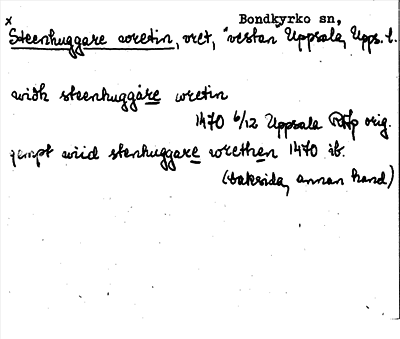 Bondkyrko sn,
x
Steenhuggare wretin, vret, "vestan" Uppsala, Upps. l.
widh steenhuggare wretin
1470 6/12 Uppsala RAp orig.
jempt wiid stenhuggare wrethen 1470 ib.
(baksida, annan hand)